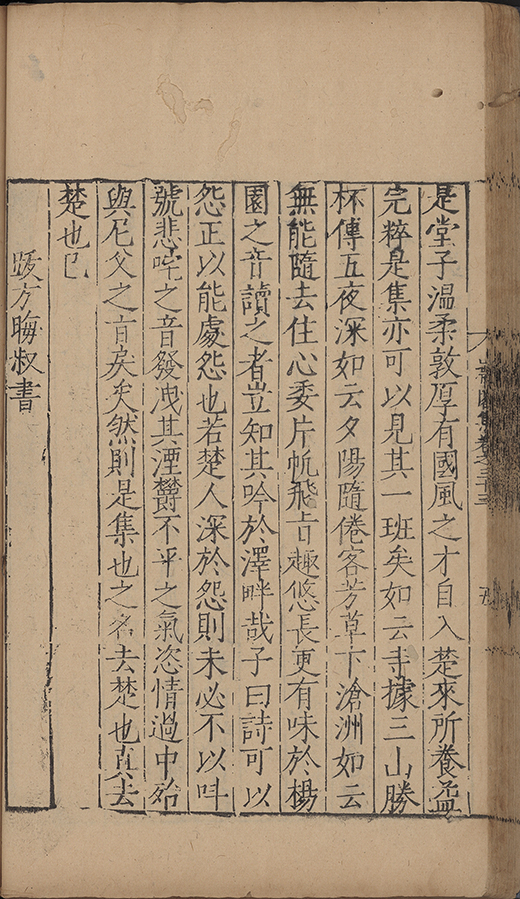 是堂子溫柔敦厚有國風之才自入楚來所養益
完粹是集亦可以見其一班矣如云寺據三山勝
杯傳五夜深如云夕陽隨倦客芳草下滄洲如云
無能隨去住心委片帆飛旨趣悠長更有味於楊
園之音讀之者豈知其吟於澤畔哉子曰詩可以
怨正以能處怨也若楚人深於怨則未必不以叫
號悲咤之音發洩其湮欝不平之氣恣情過中殆
與尼父之旨戾矣然則是集也之名去楚也真去
楚也已
跋方晦叔書